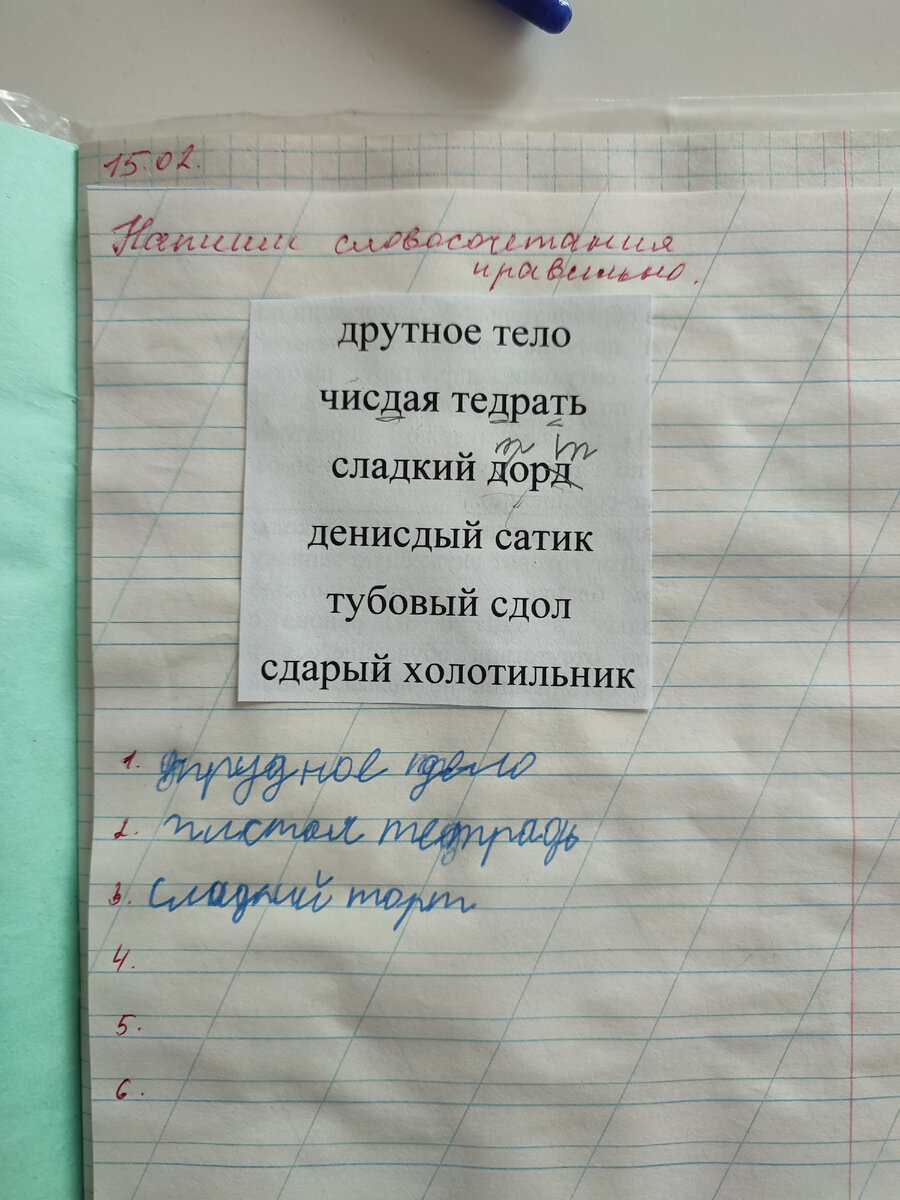 15.02.
Напиши словосочетания
правильно.
друтное тело
чисдая тедрать
т т
сладкий дорд
денисдый сатик
тубовый сдол
сдарый холотильник
1. трудное дело
2. чистая тетрадь
3. Сладкий торт
4.
5.
6.